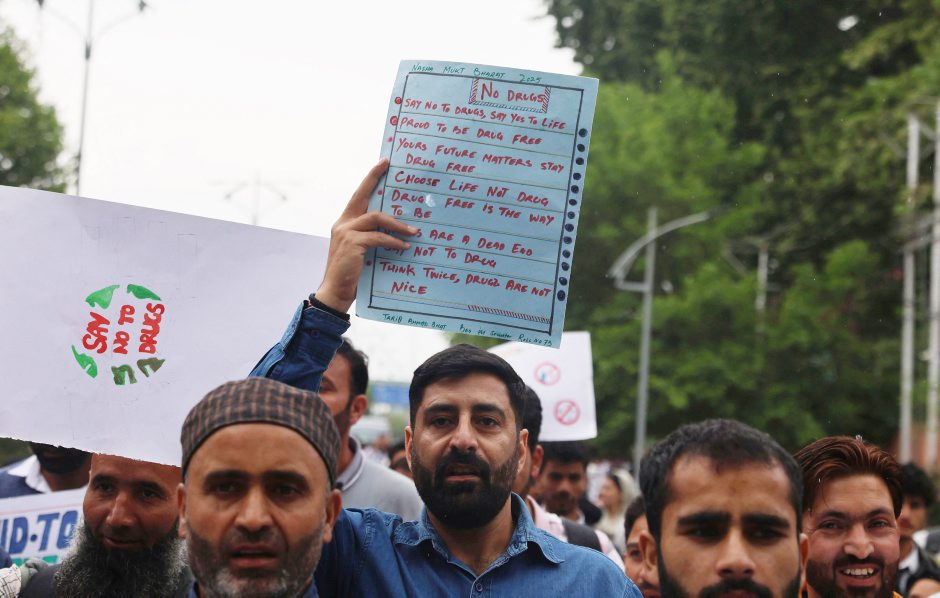 NASHA MUKT BHARAT 2025
NO DRUGS
SAY NO TO DRUGS, SAY YES TO LIFE
PROUD TO BE DRUG FREE
YOURS FUTURE MATTERS STAY
DRUG FREE
CHOOSE LIFE NOT DRUG
DRUGS FREE IS THE WAY
TO BE
ARE A DEAD END
SAY NOT TO DRUG
THINK TWICE, DRUGZ ARE NOT
NICE
TARIQ AHMAD BHAT
Roll No 75
SAY
NO TO
DRUGS
ID-TO